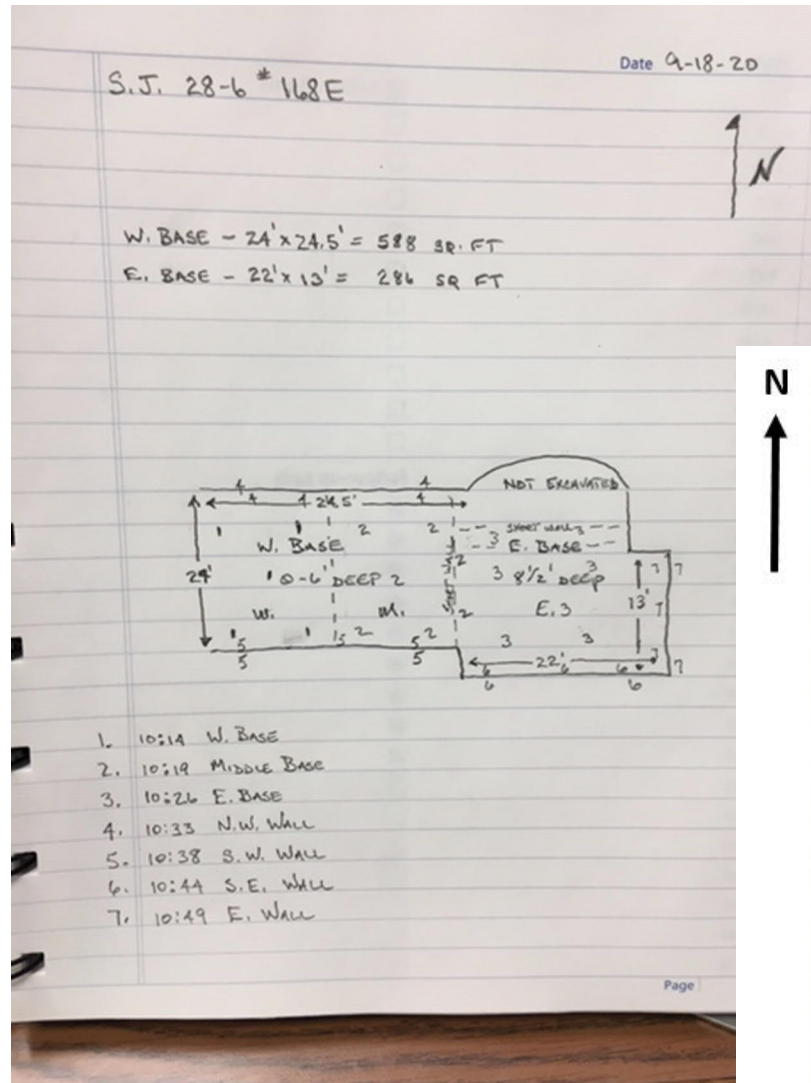 Date 9-18-20
S.J. 28-6 # 168E
N
W. BASE - 24' x 24.5' = 588 SQ. FT
E. BASE - 22' x 13' = 286 SQ FT
N
4 4 NOT EXCAVATED
4 4 24.5' 4
1 1 2 2 SHORT WALL 3
W. BASE 3 E. BASE
24' 1 0-6" DEEP 2 2 3 8 1/2' DEEP 3 7 7
W. M. SHORT WALL 2 E. 3 13' 7
1 1 5 2 2 3 3 7
5 5 22' 7
5 5 6 6 6
6 6
1. 10:14 W. BASE
2. 10:19 MIDDLE BASE
3. 10:26 E. BASE
4. 10:33 N.W. WALL
5. 10:38 S.W. WALL
6. 10:44 S.E. WALL
7. 10:49 E. WALL
Page